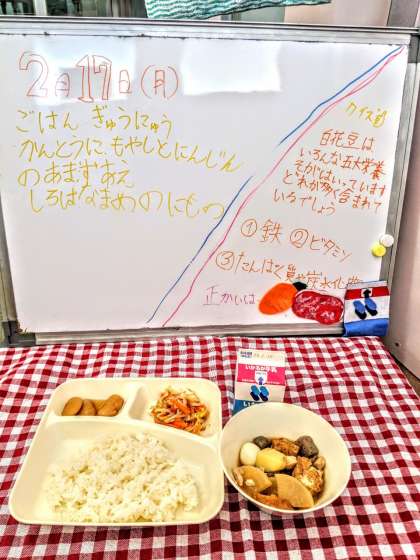 2月17日(月)
ごはん ぎゅうにゅう
かんとうに、もやしとにんじん
のあまずあえ
しろはなまめのにもの
クイズ
白花豆は
いろんな五大栄養
そがはいっています
どれが多く含まれて
いるでしょう
①鉄 ②ビタミン
③たんぱく質や炭水化物
正かいは